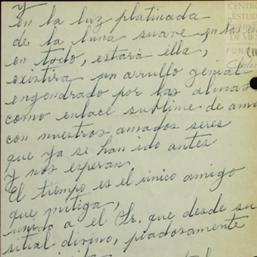 y
en la luz platinada
de la luna suave
en todo, estará ella,
existirá un arrullo genial
engendrado por las almas
como enlace sublime de amo
con nuestros amados seres
que ya se han ido antes
y nos esperan.
El tiempo es el único amigo
que mitiga,
unido a el Sr. que desde su
sitial divino, piadosamente